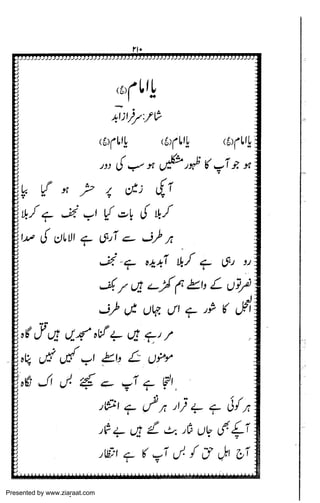 ۲۱۰
یا امام (ع)
شاعر: سرفراز ابد
یا امام (ع) یا امام (ع) یا امام (ع)
ہو جو آپ کا ظہور مشکلیں ہو سب کی دور
آپکی زمین پر حشر ہو گیا بپا
کربلا کی بات کیا اب نجف ہے کربلا
ہر طرف سے آرہی ہے الاماں کی صدا
رو رہی ہے کربلا آبدیدہ ہے نجف
نصرتوں کے واسطے ہم کھڑے ہیں سر بکف
العجل کا شور ہے اس جہاں میں ہر طرف
مر رہے ہیں بے گناہ مسجدیں ہیں قتل گاہ
مومنوں کے واسطے اب کہیں نہیں پناہ
التجا ہے آپ سے کیجیے بس اک نگاہ
ہر کوئی ہے بے قرار ہر نفس ہے انتشار
آپکے بھی جاں نثار بٹ گئے ہیں بے شمار
آج اہل حق کو بس آپ کا ہے انتظار
Presented by www.ziaraat.com